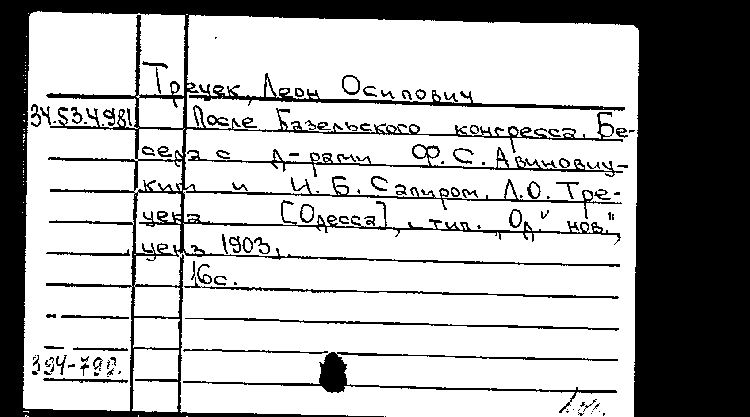 Трецек, Леон Осипович
34.53.4.981 После Базельского конгресса. Бе-
седа с д-рами Ф.С. Авиновиц-
ким и И.Б. Сапиром. Л.О. Тре-
цека. [Одесса], тип. „Од. нов.",
ценз. 1903,
16с.
394-79